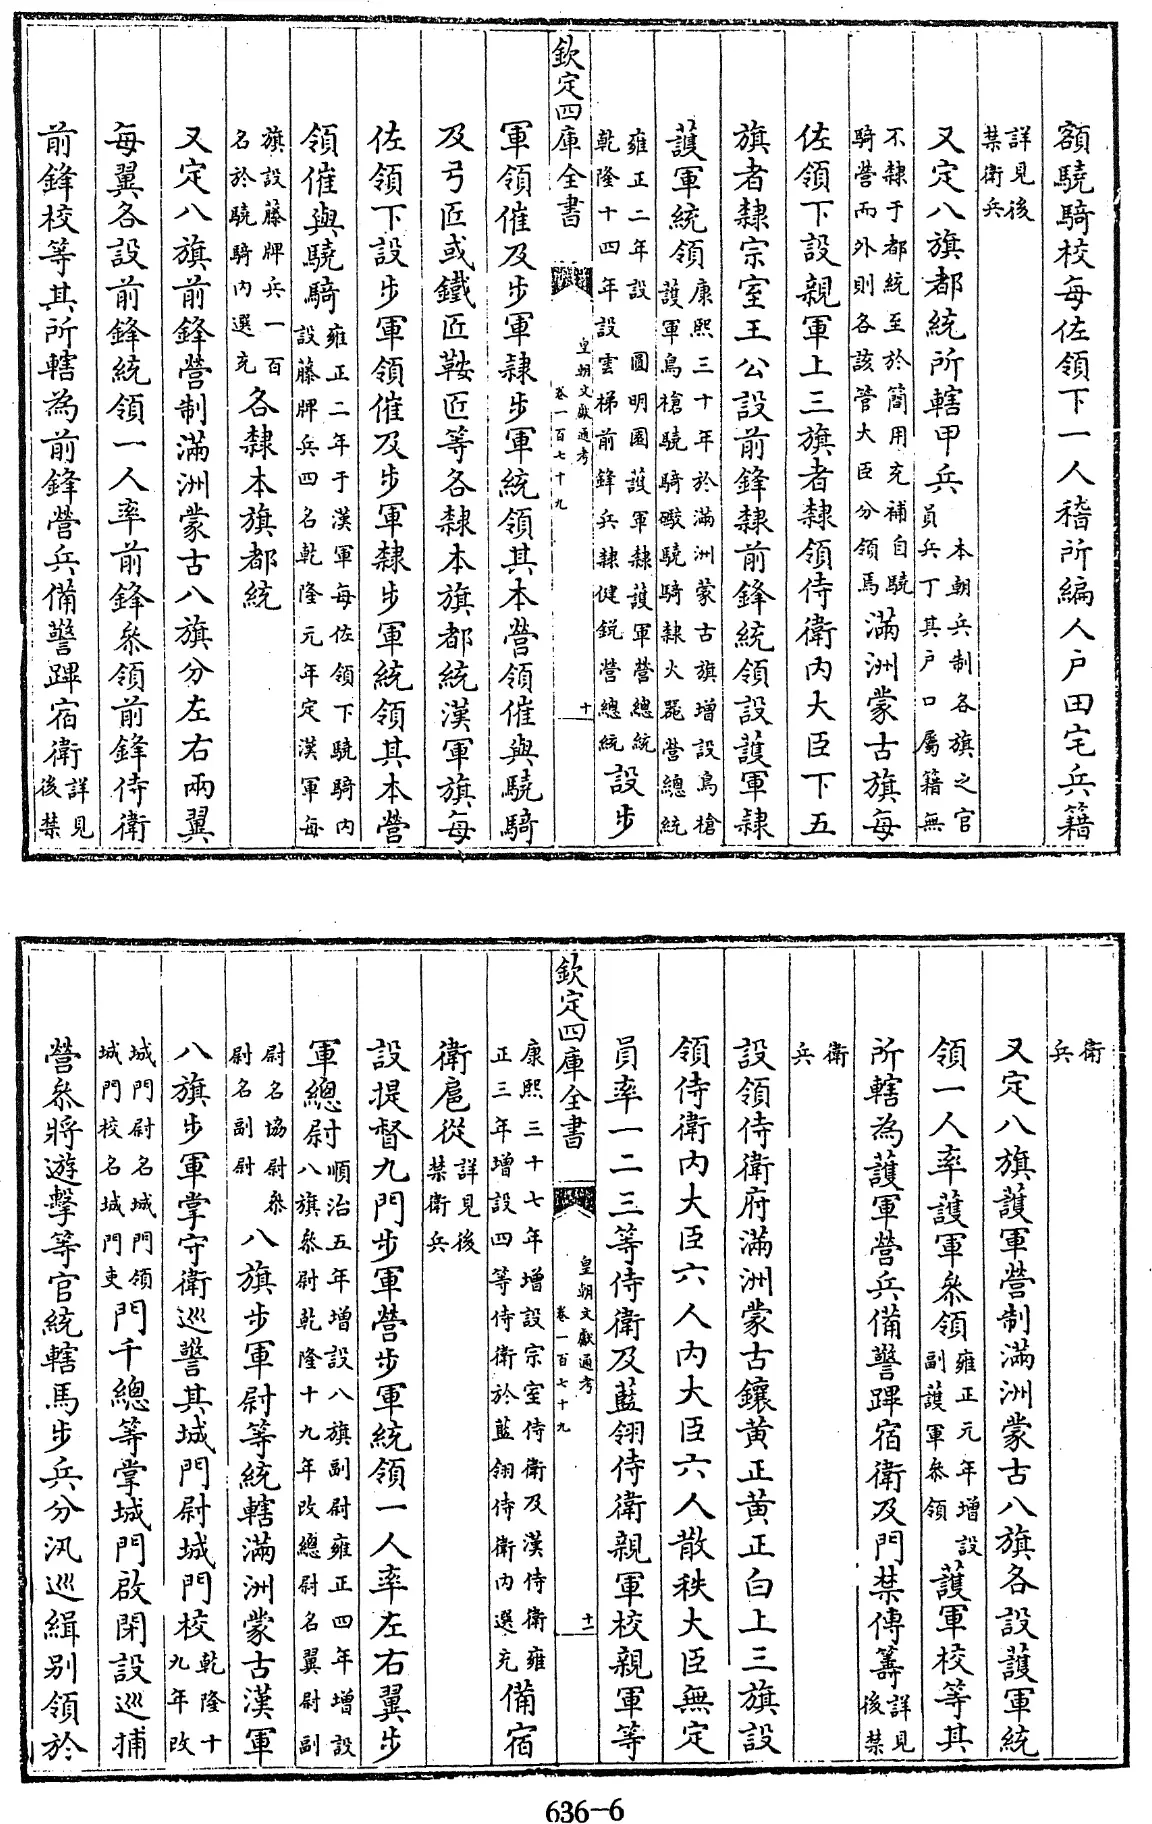 額驍騎校每佐領下一人稽所編人户田宅兵籍
詳見後
禁衛兵
又定八旗都統所轄甲兵本朝兵制各旗之官
員兵丁其户口屬籍無
不隸于都統至於簡用充補自驍
騎營而外則各該管大臣分領馬滿洲蒙古旗每
佐領下設親軍上三旗者隸領侍衛内大臣下五
旗者隸宗室王公設前鋒隸前鋒統領設護軍隸
護軍統領康熙三十年於滿洲蒙古旗增設鳥槍
護軍鳥槍驍騎礮驍騎隸火器營總統
雍正二年設圓明園護軍隸護軍營總統
乾隆十四年設雲梯前鋒兵隸健鋭營總統設步
欽定四庫全書
皇朝文獻通考
卷一百七十九
十
軍領催及步軍隸步軍統領其本營領催與驍騎
及弓匠或鐵匠鞍匠等各隸本旗都統漢軍旗每
佐領下設步軍領催及步軍隸步軍統領其本營
領催與驍騎雍正二年于漢軍每佐領下驍騎内
設藤牌兵四名乾隆元年定漢軍每
旗設藤牌兵一百
名於驍騎内選充各隸本旗都統
又定八旗前鋒營制滿洲蒙古八旗分左右兩翼
每翼各設前鋒統領一人率前鋒叅領前鋒侍衛
前鋒校等其所轄為前鋒營兵備警蹕宿衛詳見
後禁
衛
兵
又定八旗護軍營制滿洲蒙古八旗各設護軍統
領一人率護軍叅領雍正元年增設
副護軍叅領護軍校等其
所轄為護軍營兵備警蹕宿衛及門禁傳籌詳見
後禁
衛
兵
設領侍衛府滿洲蒙古鑲黄正黄正白上三旗設
領侍衛内大臣六人内大臣六人散秩大臣無定
員率一二三等侍衛及藍翎侍衛親軍校親軍等
欽定四庫全書
皇朝文獻通考
卷一百七十九
十一
康熙三十七年增設宗室侍衛及漢侍衛雍
正三年增設四等侍衛於藍翎侍衛内選充備宿
衛扈從詳見後
禁衛兵
設提督九門步軍營步軍統領一人率左右翼步
軍總尉順治五年增設八旗副尉雍正四年增設
八旗叅尉乾隆十九年改總尉名翼尉副
尉名協尉叅
尉名副尉八旗步軍尉等統轄滿洲蒙古漢軍
八旗步軍掌守衛巡警其城門尉城門校乾隆十
九年改
城門尉名城門領
城門校名城門吏門千總等掌城門啟閉設巡捕
營叅將遊擊等官統轄馬步兵分汛巡緝别領於
636-6